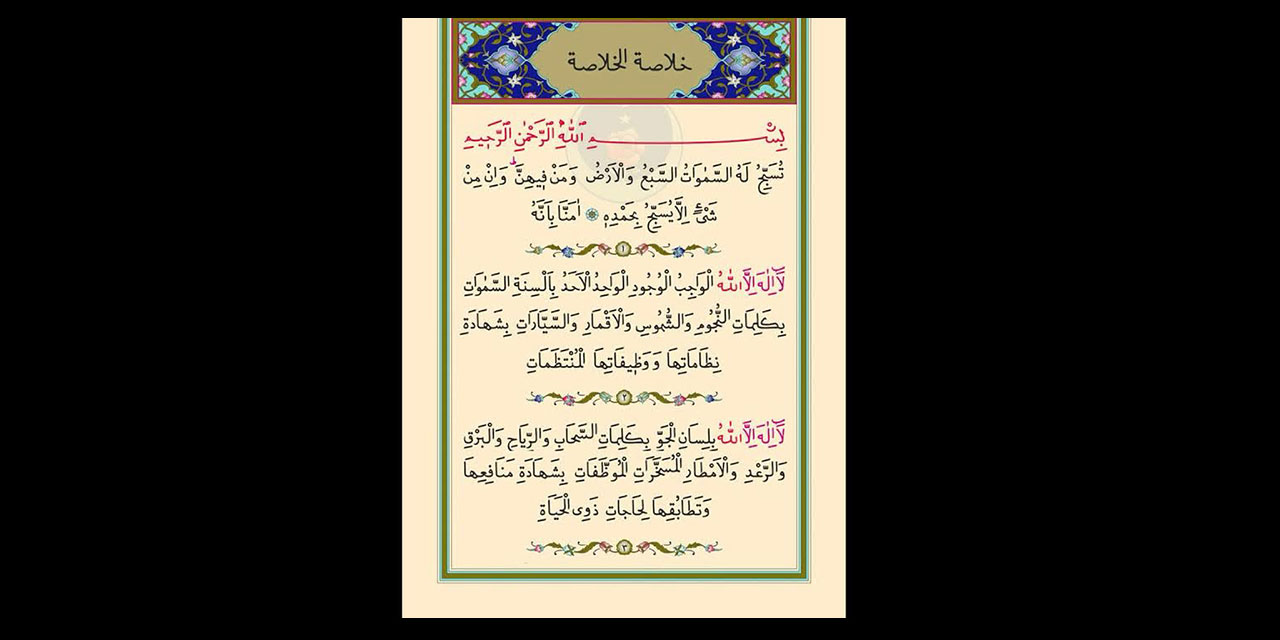 خلاصة الخلاصة
بِسْــــــمِ اللّٰهِ الرَّحْمٰنِ الرَّحٖيمِ
تُسَبِّحُ لَهُ السَّمٰوَاتُ السَّبْعُ وَالْاَرْضُ وَمَنْ فٖيهِنَّ وَاِنْ مِنْ
شَىْءٍ اِلَّا يُسَبِّحُ بِحَمْدِهٖ ❁ اٰمَنَّا بِاَنَّهُ
١
لَٓا اِلٰهَ اِلَّا اللّٰهُ الْوَاجِبُ الْوُجُودِ الْوَاحِدُ الْاَحَدُ بِاَلْسِنَةِ السَّمٰوَاتِ
بِكَلِمَاتِ النُّجُومِ وَالشُّمُوسِ وَالْاَقْمَارِ وَالسَّيَّارَاتِ بِشَهَادَةِ
نِظَامَاتِهَا وَوَظٖيفَاتِهَا الْمُنْتَظَمَاتِ
٢
لَٓا اِلٰهَ اِلَّا اللّٰهُ بِلِسَانِ الْجَوِّ بِكَلِمَاتِ السَّحَابِ وَالرِّيَاحِ وَالْبَرْقِ
وَالرَّعْدِ وَالْاَمْطَارِ الْمُسَخَّرَاتِ الْمُوَظَّفَاتِ بِشَهَادَةِ مَنَافِعِهَا
وَتَطَابُقِهَا لِحَاجَاتِ ذَوِى الْحَيَاةِ
٣